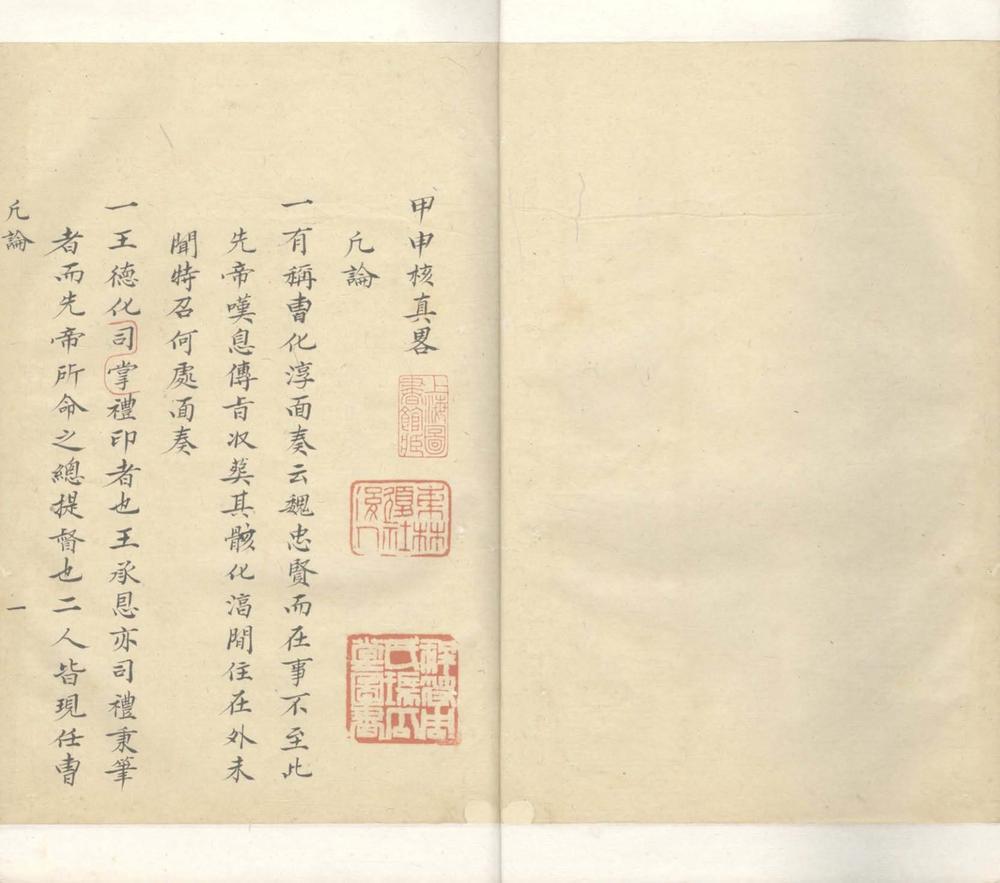 甲申核真畧
上海圖書館藏
東林復社後人
祥符周氏瑞瓜堂圖書
凡論
一有稱曹化淳面奏云魏忠賢而在事不至此
先帝嘆息傳旨收葬其骸化淳閒住在外未
聞特召何處面奏
一王德化司掌禮印者也王承恩亦司禮秉筆
者而先帝所命之總提督也二人皆現任曹
凡論
一